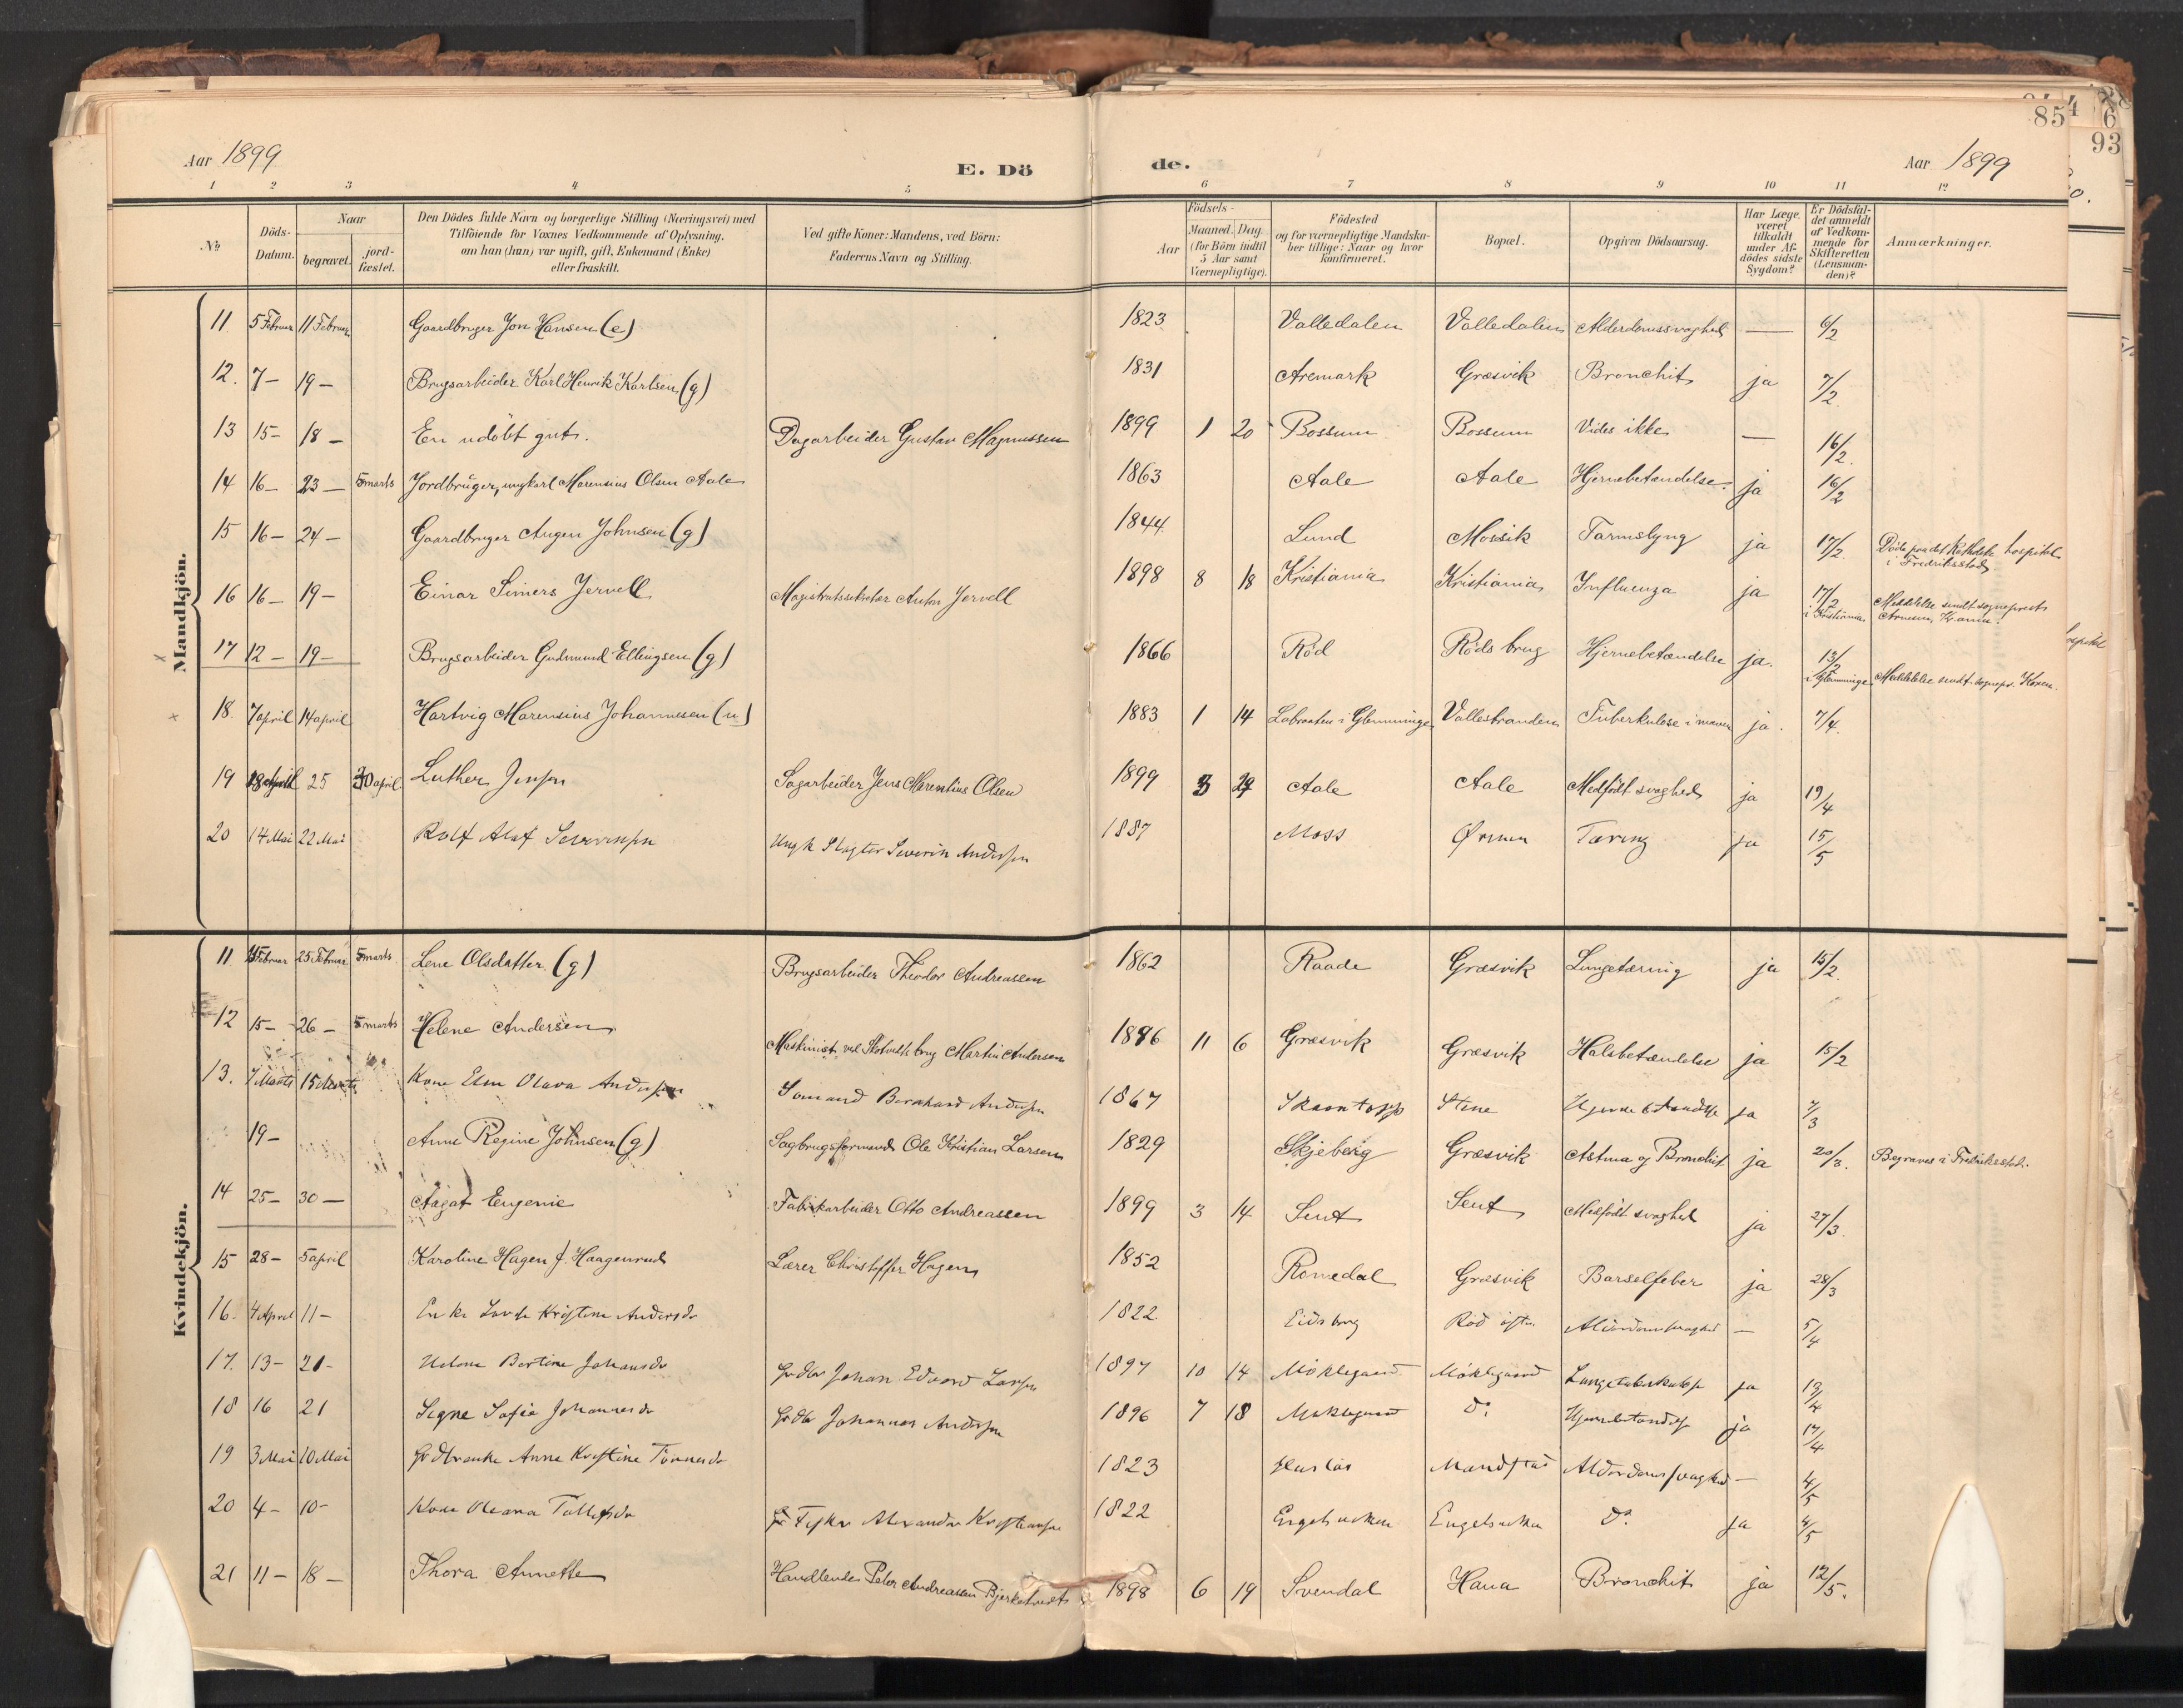 85
93
Aar 1899
E. Dö
de.
Aar 1899
1 2 3 4 5 6 7 8 9 10 11 12
№
Döds-Datum.
Naar
begravet.
jord-fæstet.
Den Dödes fulde Navn og borgerlige Stilling (Næringsvei) med
Tilföiende for Voxnes Vedkommende af Oplysning.
om han (hun) var ugift, gift, Enkemand (Enke)
eller fraskilt.
Ved gifte Koner: Mandens, ved Börn:
Faderens Navn og Stilling.
Aar
Födsels-
Maaned. Dag.
(for Börn indtil
5 Aar samt
Værnepligtige).
Födested
og for værnepligtige Mandska-
ber tillige: Naar og hvor
konfirmeret.
Bopæl.
Opgiven Dödsaarsag.
Har Læge
været
tilkaldt
under Af-
dödes sidste
Sygdom?
Er Dödsfal-
det anmeldt
af Vedkom-
mende for
Skifteretten
(Lensman-
den)?
Anmærkninger.
Mandkjön.
11. 5 Februar 11 Februar Gaardbruger Jon Hansen (e) 1823 Valledalen Valledalen Alderdomssvaghed — 6/2
12. 7 – 19 – Brugsarbeider Karl Henrik Karlsen (g) 1831 Aremark Græsvik Bronchit ja 7/2
13 15 – 18 – En udöbt gut. Dagarbeider Gustav Magnussen 1899 1 20 Bossum Bossum Vides ikke — 16/2.
14 16 – 23 – 5 marts Jordbruger, ungkarl Marensius Olsen Aale 1863 Aale Aale Hjernebetændelse. ja 16/2
15 16 – 24 – Gaardbruger Augen Johnsen (g) 1844 Lund Mossik Tarmslyng ja 17/2. Döde paa det Katholske hospital
i Fredriksstad
16 16 – 19 – Einar Simers Jervell Magistratssekretær Anton Jervell 1898 8 18 Kristiania Kristiania Influenza ja 17/2 i Kristiania Meddelelse sendt sogneprest
17 12 – 19 – Brugsarbeider Gudmund Ellingsen (g) 1866 Röd Röds brug Hjernebetændelse ja. 13/2 i Glemminge Meddelelse sendt sognepr.
18. 7 april 14 april Hartvig Marensius Johannesen (u) 1883 1 14 Labraaten i Glemminge Vallestranden Tuberkulose i maven ja. 7/4.
19 April 25 30 april Luther Jensen Sagarbeider Jens Marentius Olsen 1899 3 29 Aale Aale Medfödt svaghed ja 19/4
20 14 Mai 22 Mai Rolf Alaf Severinsen Ungk Slagter Severin Andersen 1887 Moss Ørmen Tæring ja 15/5
Kvindekjön.
11 Februar 25 Februar 5 marts Lene Olsdatter (g) Brugsarbeider Theodor Andreassen 1862 Raade Græsvik Lungetæring ja 15/2.
12 15 – 26 – 5 marts Helene Andersen Maskinist ved brug Martin Andersen 1896 11 6 Græsvik Græsvik Halsbetændelse ja 15/2
13. 7 Marts 15 Marts Kone Elen Olava Andersen Sömand Bernhard Andersen 1867 Stene ja 7/3
19 – Anne Regine Johnsen (g) Sagbrugsformand Ole Kristian Larsen 1829 Skjeberg Græsvik Astma og Bronchit ja 20/3. Begraves i Fredriksstad.
14 25 – 30 – Aagat Eugenie Fabrikarbeider Otto Andreassen 1899 3 14 Lent Lent Medfödt svaghed ja 27/3.
15 28 – 5 april Karoline Hagen f. Haagenrud Lærer Christoffer Hagen 1852 Romedal Græsvik Barselfeber ja 28/3
16. 4 April 11 – Enke Kristine Andersdr 1822 Eidsberg Röd Alderdomssvaghed — 5/4
17. 13 – 21 – Helene Bertine Johansdr Johan Edvard Larsen 1897 10 14 Möklegaard Möklegaard Lungetuberkulose ja 13/4
18 16 21 Signe Sofie Johannesdr Johannes Andersen 1896 7 18 Möklegaard Do Hjernebetændelse ja 17/4
19 3 Mai 10 Mai Anne Kristine Tönnesdr 1823 Alderdomssvaghed — 4/5
20 4 – 10 – Kone Oleana Tollefsdr Fisker Alexander Kristiansen 1822 Engelsviken Engelsviken Do ja 4/5
21 11 – 18 – Thora Annette Handlende Peter Andreassen Bjerketvedt 1898 6 19 Svendal Hana Bronchit ja 12/5.